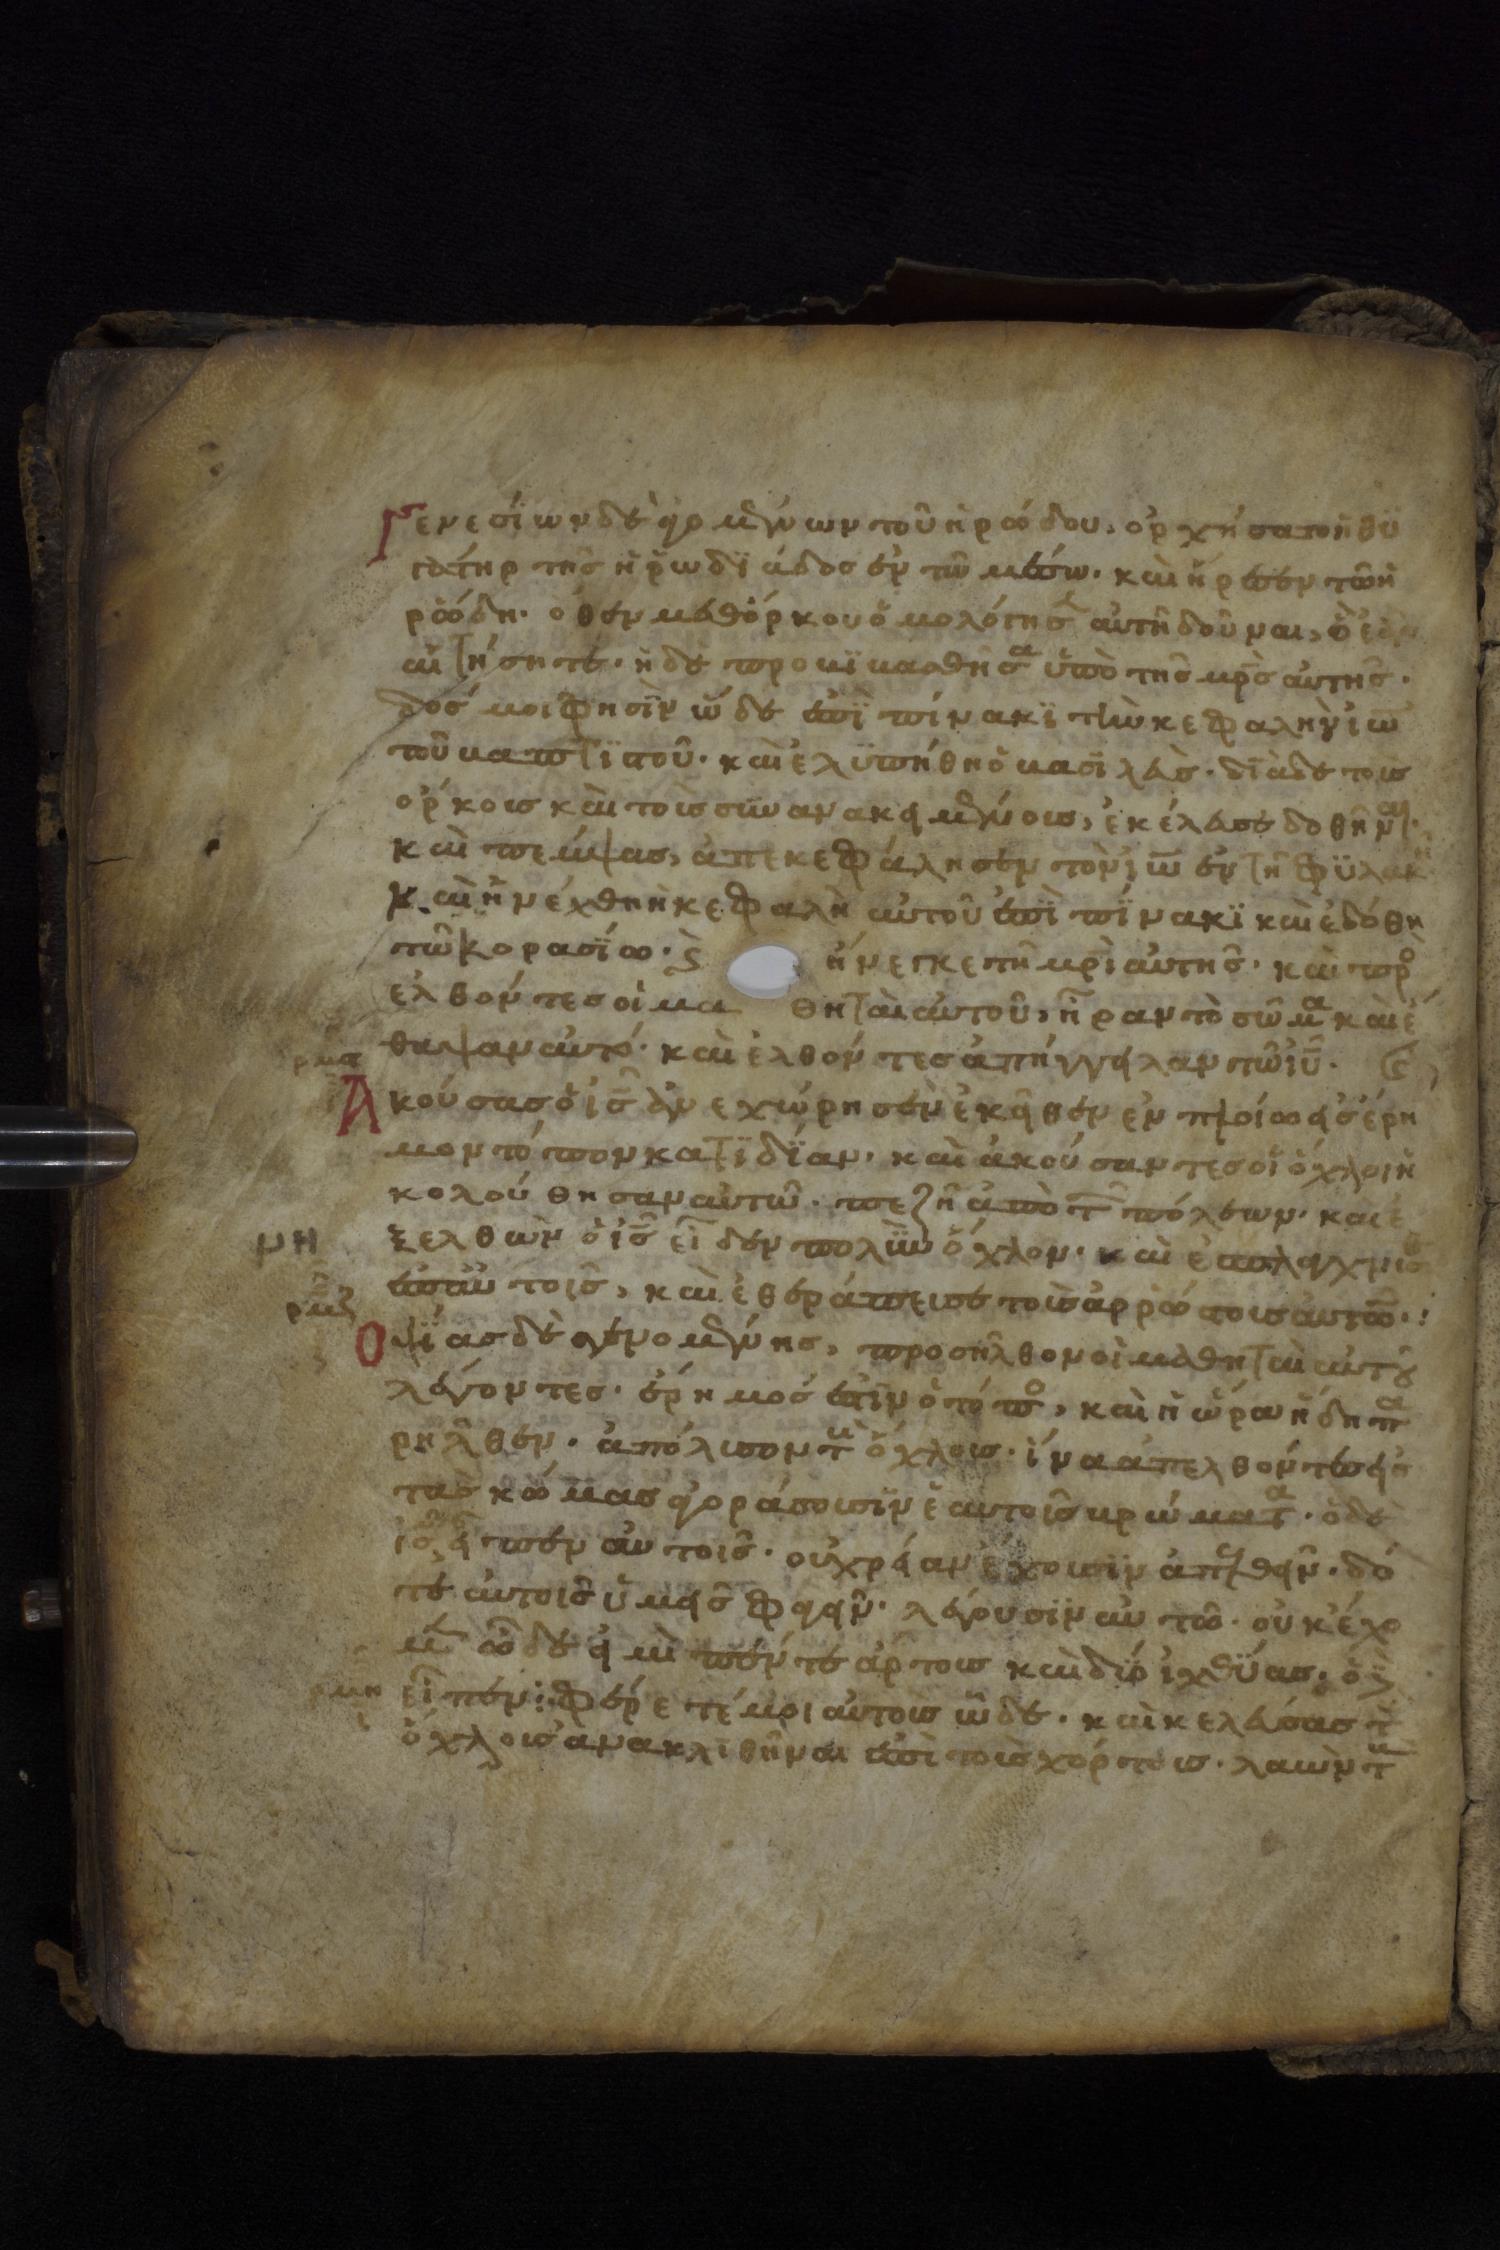 Γενεσϊων δὲ ἀγομένων τοῦ ἡρώδου, ὀρχήσατο ἡ θυ
γάτηρ τῆς ἡρωδϊάδος ἐν τῶ μέσω· καὶ ἤρεσεν τῶ ἡ
ρώδη· ὅθεν μεθόρκου ὁμολόγησ αὐτῆ δοῦναι, ὃ ἐὰν
αἰτήσητε· ἡ δὲ προβϊβασθῆσα ὑπὸ τῆς μρ̅ς αὐτῆς·
δός μοι φησὶν ὧδε ἐπὶ πίνακϊ τὴν κεφαλὴν ἰω̅
τοῦ βαπτϊστοῦ· καὶ ἐλυπήθη ὁ βασϊλεὺς· διὰ δὲ τοὺς
ὅρκους καὶ τοὺς συνανακειμένους, ἐκέλευσε δοθῆναι·
καὶ πέμψας, ἀπεκεφάλησεν τὸν ἰω̅ ἐν τῆ φυλακῆ
καὶ ἠνέχθη ἡ κεφαλὴ αὐτοῦ ἐπὶ πίνακϊ καὶ ἐδόθη
τῶ κορασίω· ϗ ἤνεγκε τῆ μρ̅ὶ αὐτῆς· καὶ προ
ελθόντες οἱ μαθηταὶ αὐτοῦ, ἦραν τὸ σῶμα καὶ ἔ
θαψαν αὐτό· καὶ ἐλθόντες ἀπήγγειλαν τῶ ἰυ̅·
ρμϛ
Ἀκούσας ὁ ἰς̅ ἀνεχώρησεν ἐκεῖθεν ἐν πλοίω εἰς ἔρη
μον τόπον κατϊδίαν· καὶ ἀκούσαντες οἱ ὄχλοι ἠ
κολούθησαν αὐτῶ· πεζῆ ἀπὸ τ πόλεων· καὶ ἐ
μη
ξελθὼν ὁ ἰς̅ εἶδεν πολὺν ὄχλον· καὶ ἐσπλαχνισ
ἐπαὐτοῖς, καὶ ἐθεράπευσε τοὺς ἀρρώστους αὐτῶν·
ρμζ
Ὀψίας δὲ γενομένης, προσῆλθον οἱ μαθηταὶ αὐτοῦ
λέγοντες· ἔρημος ἐστιν ὁ τόπος, καὶ ἡ ὥρα ἤδη πα
ρῆλθεν· ἀπόλυσον τ ὄχλους· ἵνα ἀπελθόντες εἰς
τὰς κώμας ἀγοράσουσϊν ἑαυτοῖς βρώματα· ὁ δὲ
ἰς̅ εἶπεν αὐτοῖς· οὐ χρείαν ἔχουσϊν ἀπελθεῖν· δό
τε αὐτοῖς ὑμεῖς φαγεῖν· λέγουσϊν αὐτῶ· οὐκ ἔχο
μεν ὧδε εἰ μὴ πέντε ἄρτους καὶ δύο ἰχθύας· ὁ δὲ
ρμη
εἶπεν· φέρετέ μοι αὐτοὺς ὧδε· καὶ κελεύσας τ
ὄχλους ἀνακλιθῆναι ἐπὶ τοὺς χόρτους· λαβὼν τ